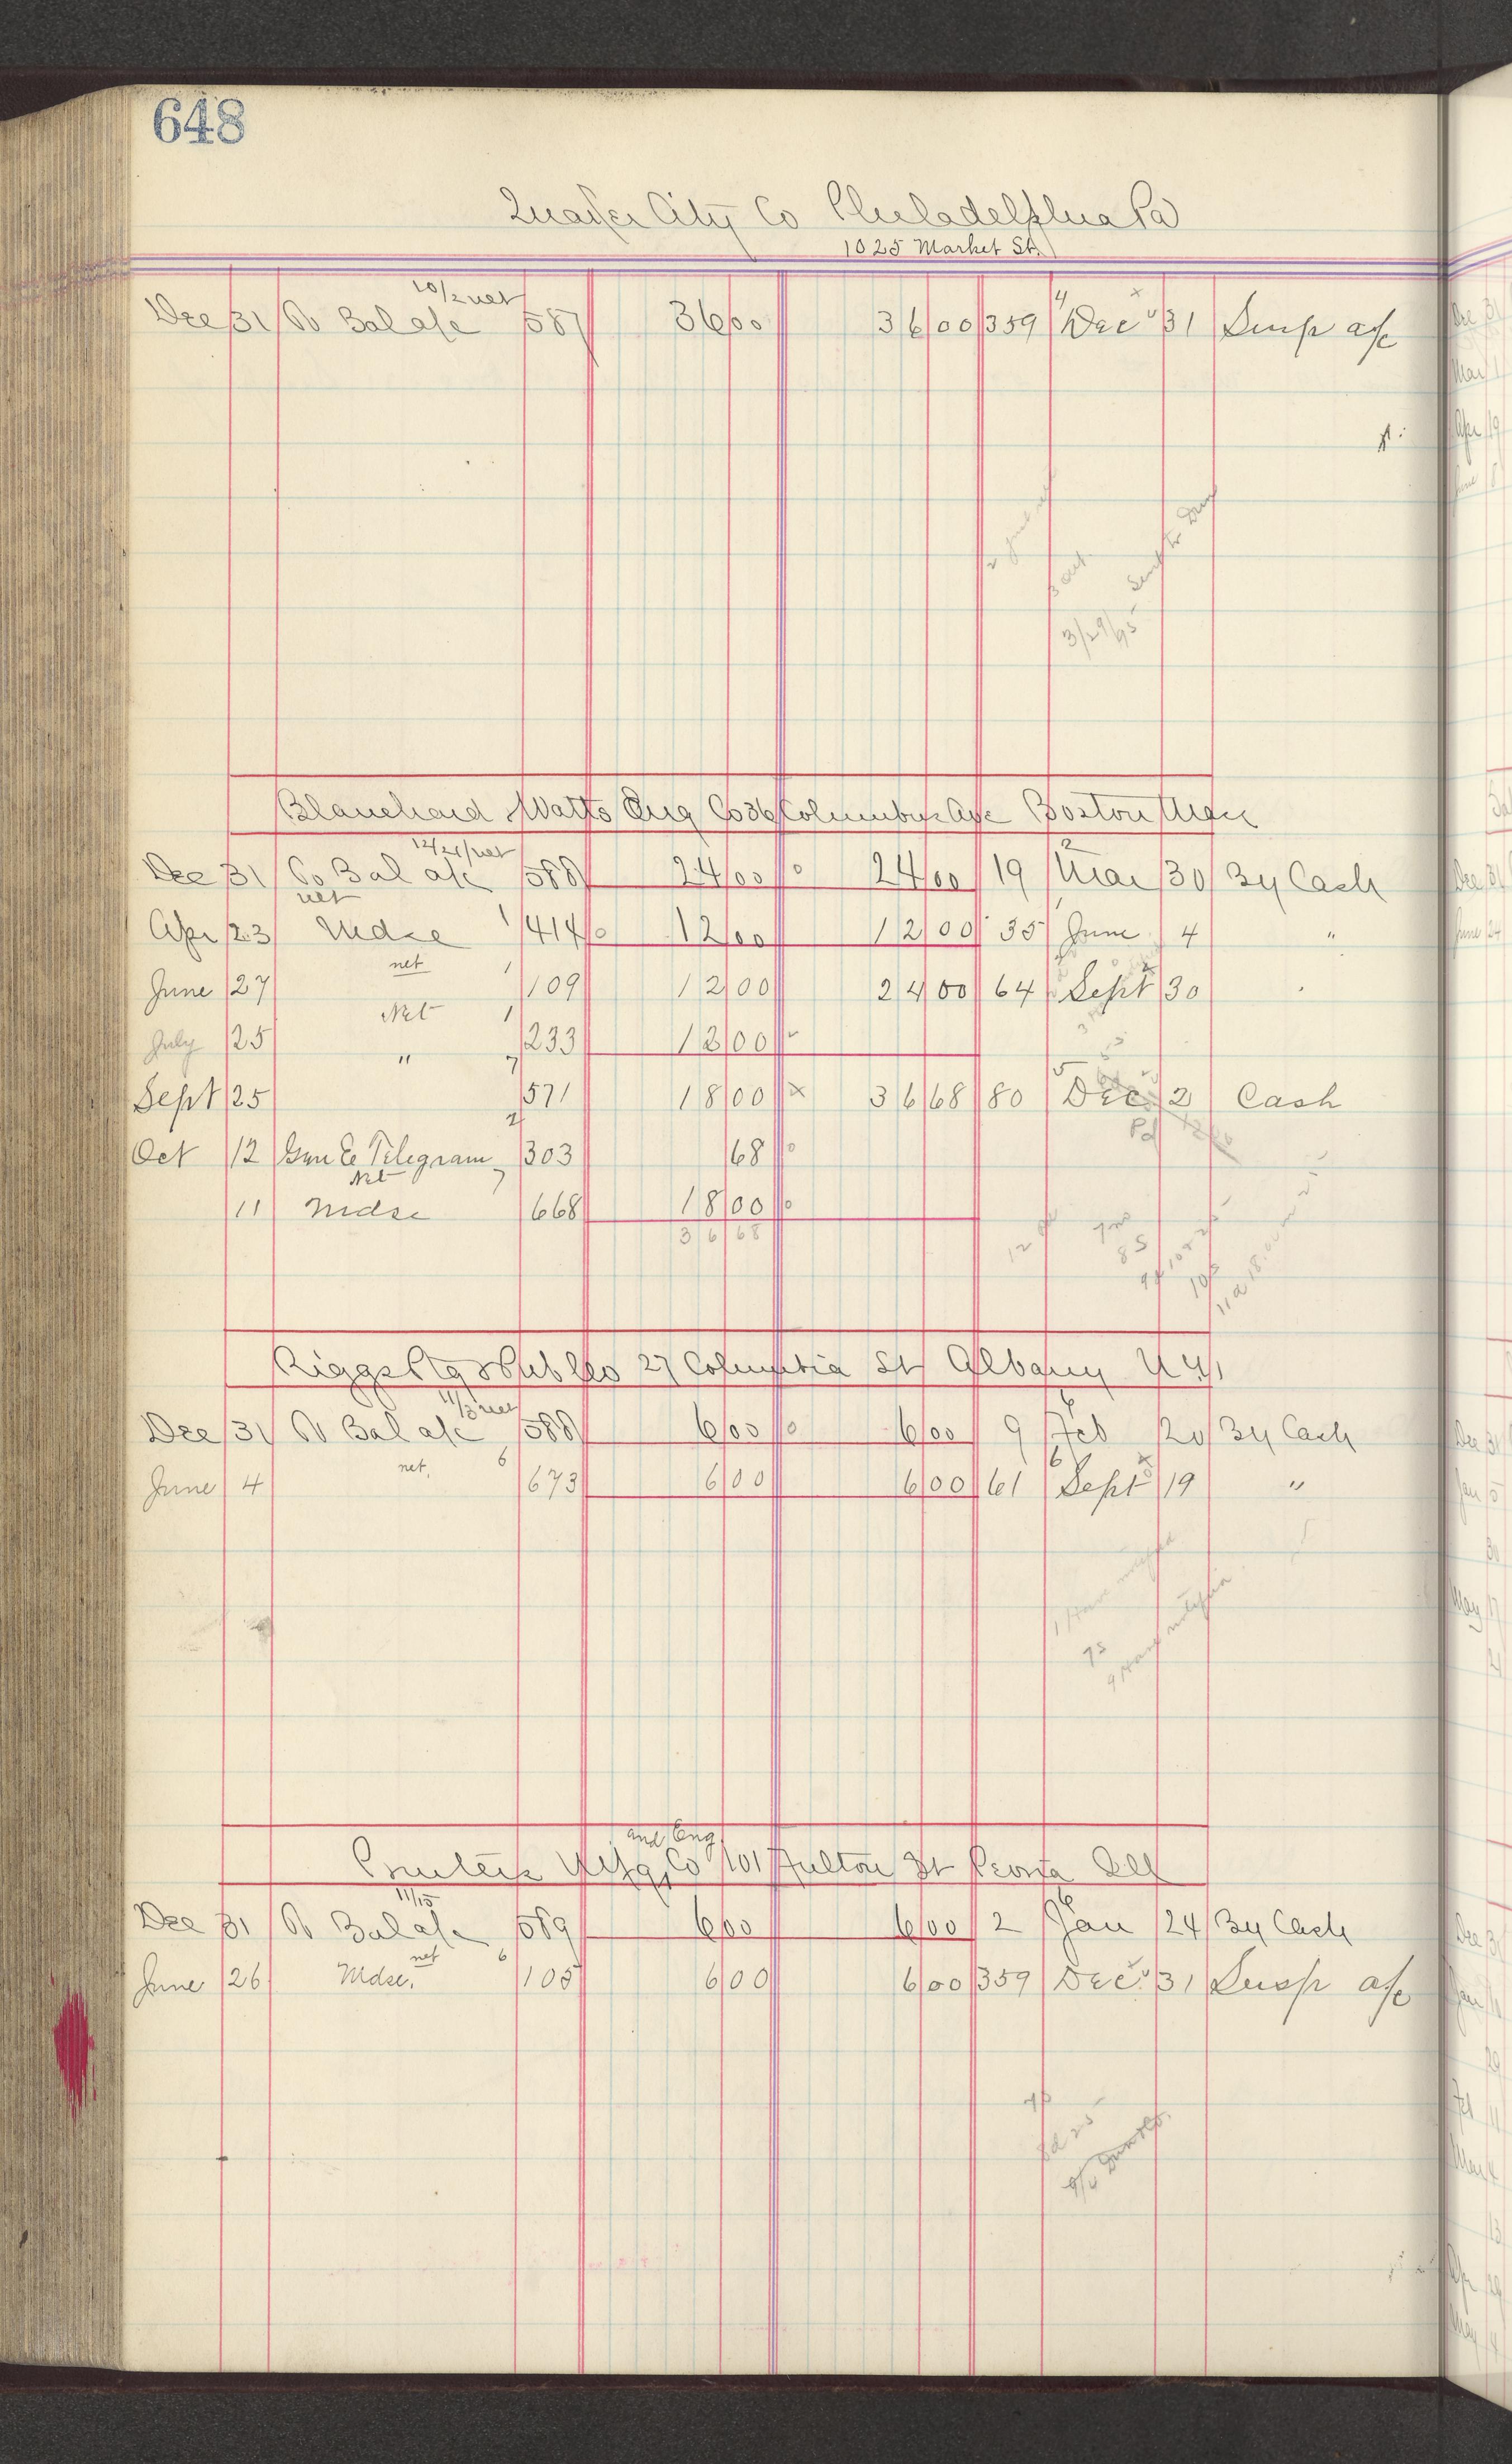 648
Quaker City Co Philadelphia Pa
1025 Market St.
10/2 net
Dec 31 To Bal a/c 587 36 00 36 00 359 4 Dec 31 Susp a/c
Sent to Dun
3/29/95
Blanchard Watts Eng Co 36 Columbus Ave Boston Mass
12/21/net
Dec 31 To Bal a/c 588 24 00 24 00 19 2 Mar 30 By Cash
net
Apr 23 Mdse 1 414 12 00 12 00 35 June 4 "
net
June 27 1 109 12 00 24 00 64 Sept 30
Net
July 25 1 233 12 00
"
Sept 25 7 571 18 00 36 68 80 5 Dec 2 Cash
Pd
Oct 12 Gen E Telegram 2 303 68
Net
11 Mdse 7 668 18 00
36 68
Riggs Ptg & Pub Co 27 Columbia St Albany N.Y.
11/3 net
Dec 31 To Bal a/c 588 6 00 6 00 9 6 Feb 20 By Cash
net
June 4 6 673 6 00 6 00 61 6 Sept 19 "
and Eng
Printers Mfg Co 101 Fulton St Peoria Ill
11/15
Dec 31 To Bal a/c 589 6 00 6 00 2 6 Jan 24 By Cash
net
June 26 Mdse. 6 105 6 00 6 00 359 Dec 31 Susp a/c